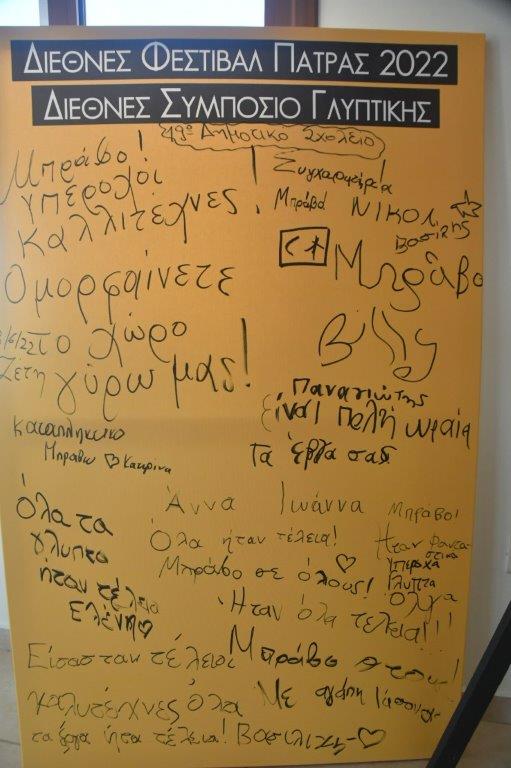 ΔΙΕΘΝΕΣ ΦΕΣΤΙΒΑΛ ΠΑΤΡΑΣ 2022
ΔΙΕΘΝΕΣ ΣΥΜΠΟΣΙΟ ΓΛΥΠΤΙΚΗΣ
49ο Δημοτικό Σχολείο
Μπράβο!
Υπέροχοι
Καλλιτέχνες!
Συγχαρητήρια!
Μπράβο ΝΙΚΟΛ
Βασίλης
Ομορφαίνετε
το χώρο
γύρω μας!
Ζέτη
Μπράβο
Billy
Παναγιώτης
Είναι πολή ωραία
Τα έργα σας
Καταπληκτικό
Μπράβω ♡ Κατρίνα
Όλα τα
γλυπτα
ήταν τέλεια
Ελένη♡
Άννα Ιωάννα
Όλα ήταν τέλεια!
Μπράβο σε όλους! ♡
Ήταν όλα τέλεια!!!
Μπράβο!
Ήταν φαντα-
στικα
Υπέροχα
Γλυπτα
Όλγα
Είσασταν τέλειοι
καλυτέχνες όλα
τα έργα ήτα τέλεια!
Μπράβο
Με αγάπη Ιάσονας